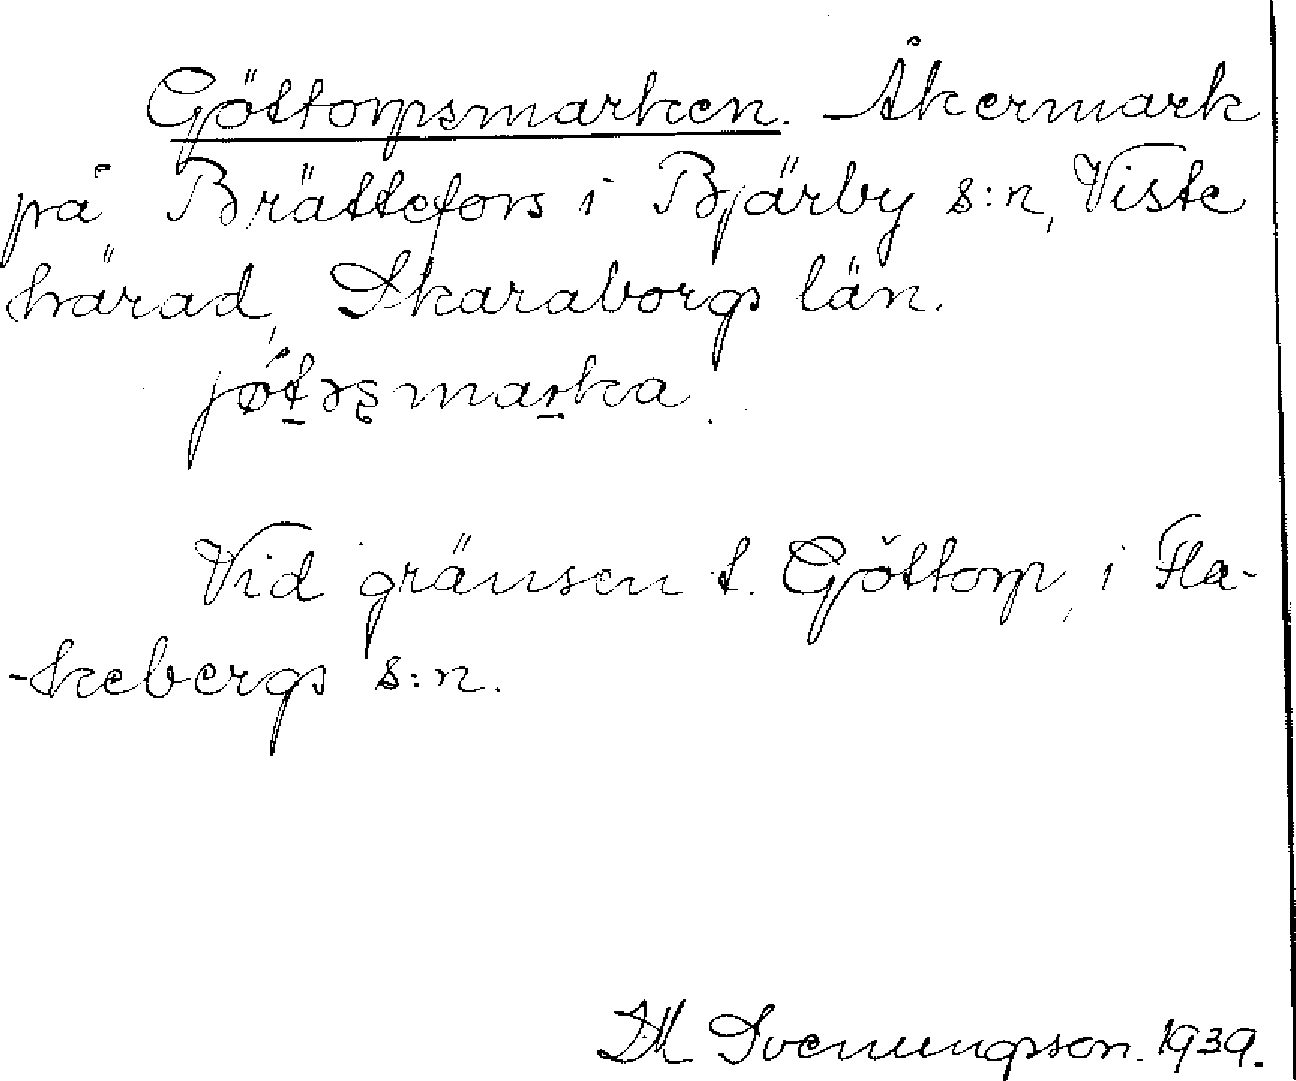 Göttorpsmarken. Åkermark
på Brättefors i Bjärby s:n, Viste
härad, Skaraborgs län.
Vid gränsen t. Göttorp, i Fla-
kebergs s:n.
Svenungsson. 1939.